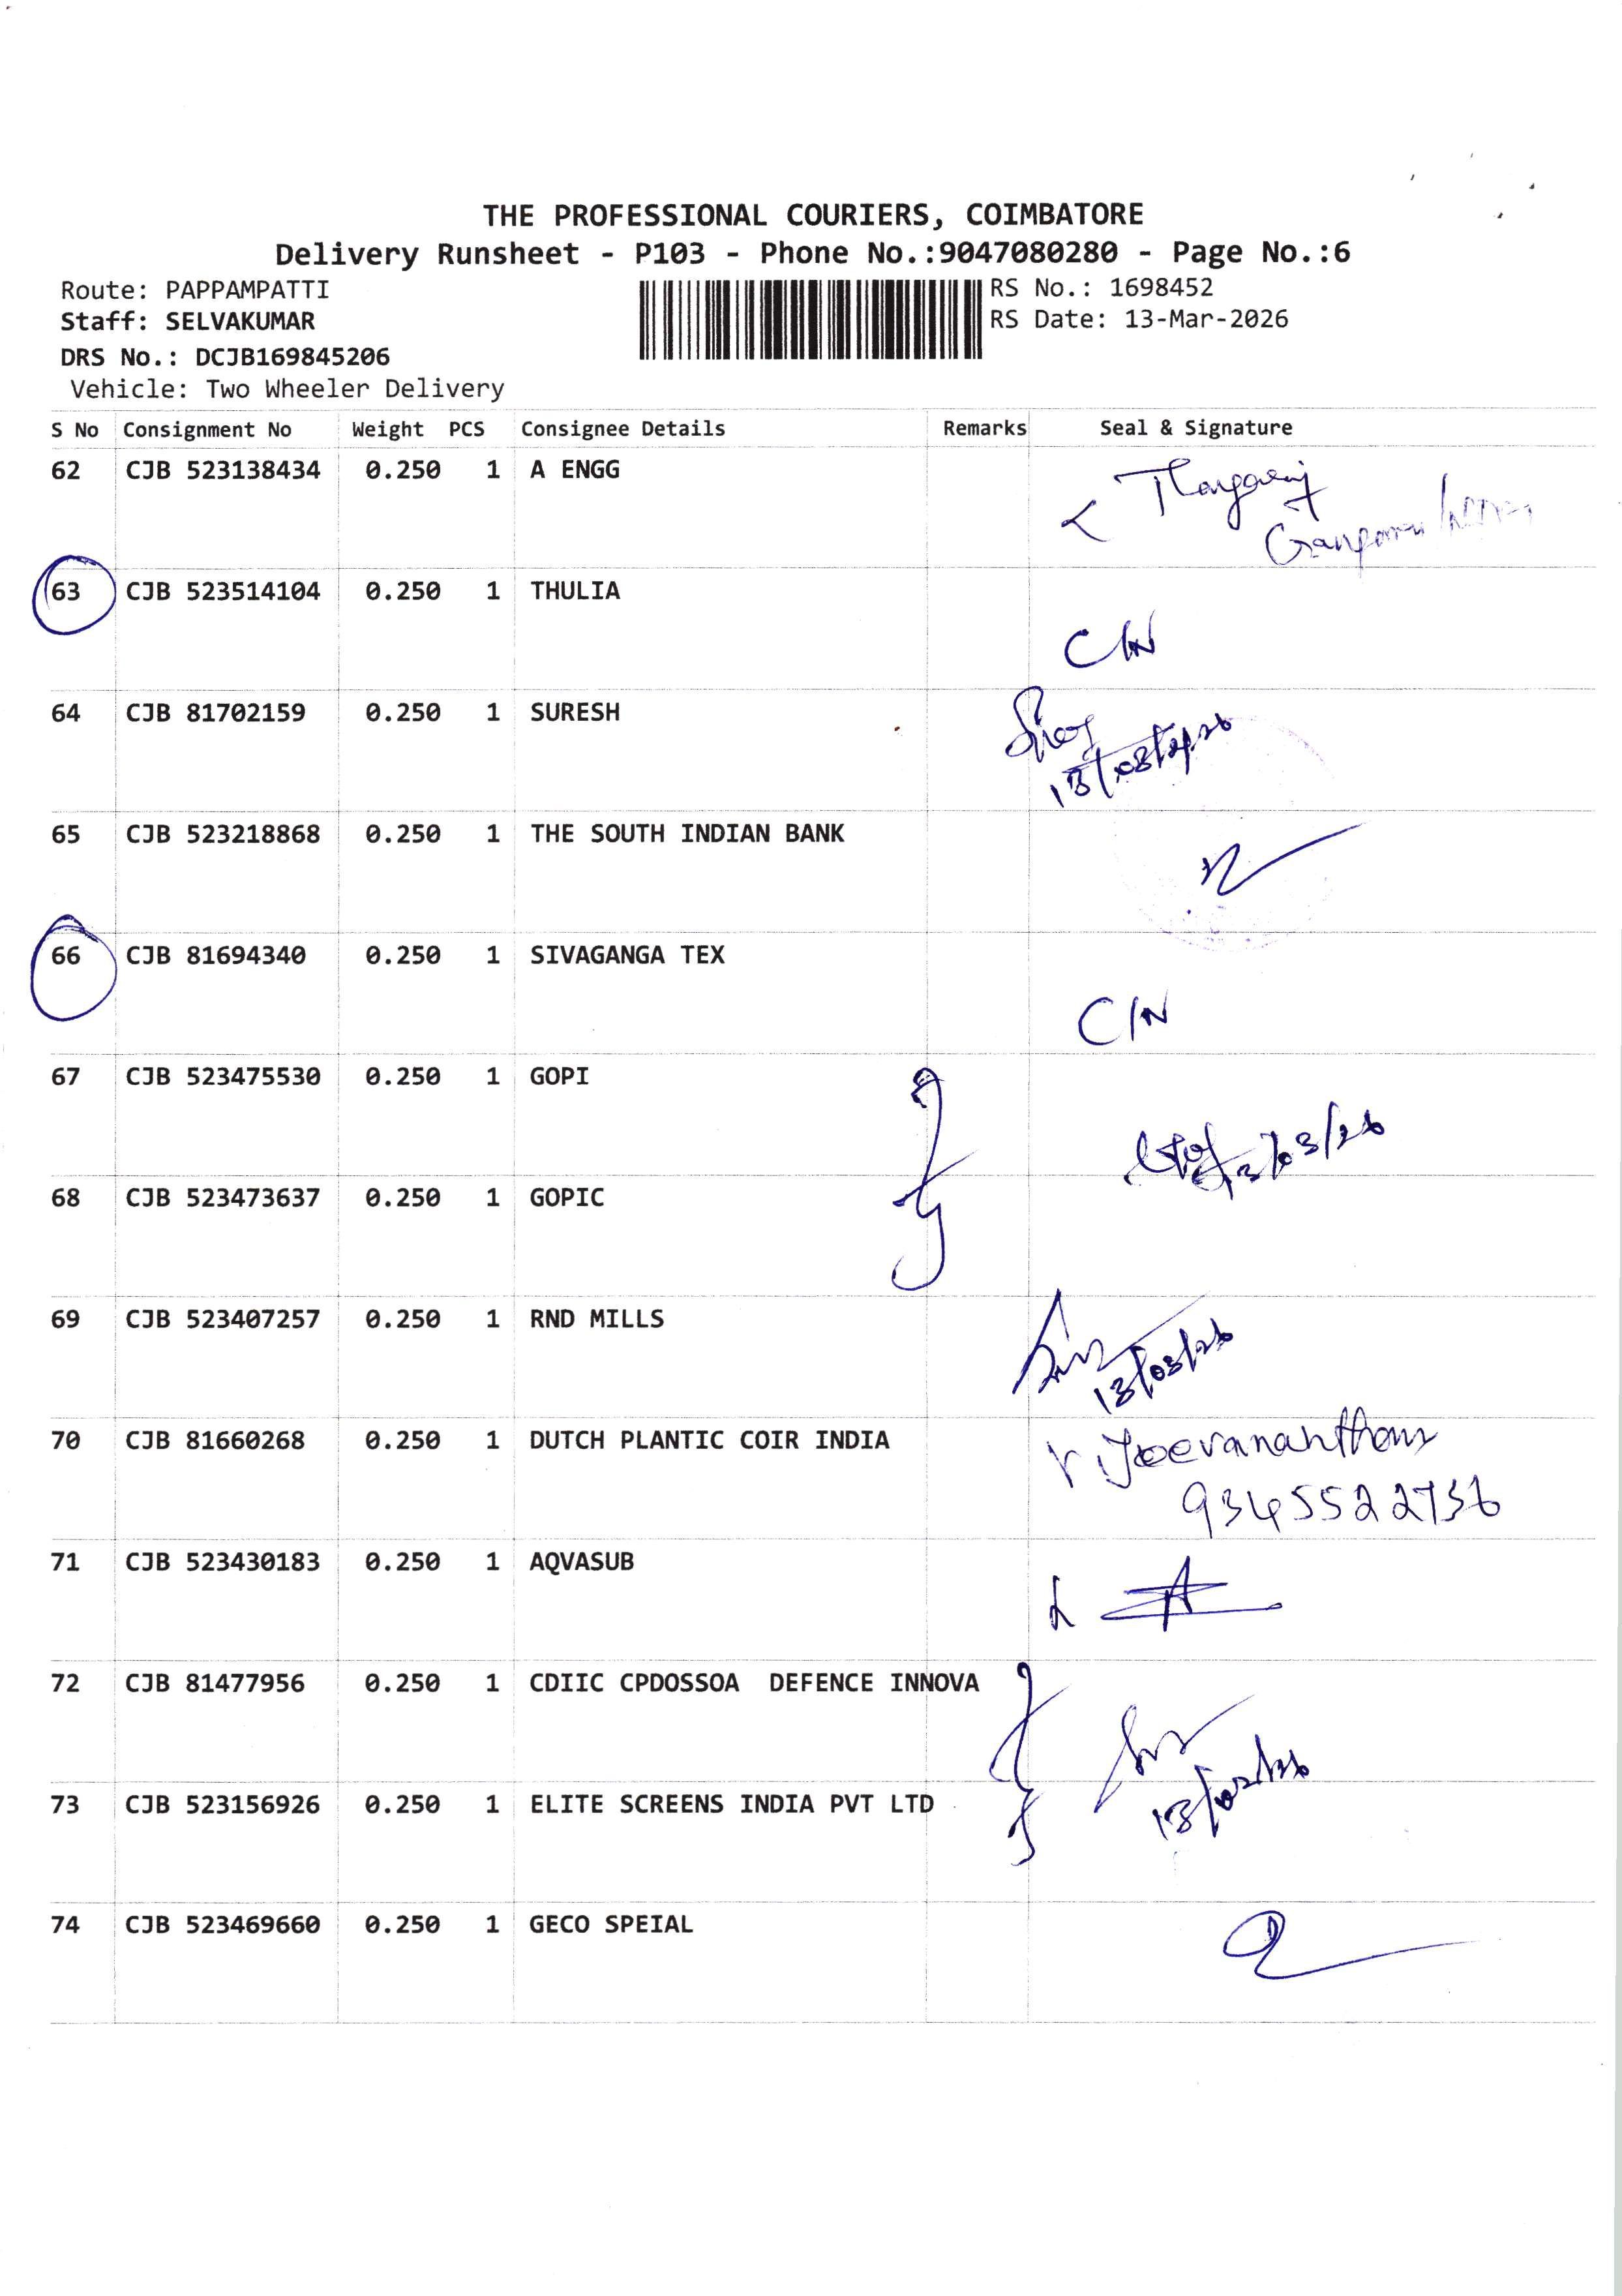 THE PROFESSIONAL COURIERS, COIMBATORE
Delivery Runsheet - P103 - Phone No.:9047080280 - Page No.:6
Route: PAPPAMPATTI
RS No.: 1698452
Staff: SELVAKUMAR
RS Date: 13-Mar-2026
DRS No.: DCJB169845206
Vehicle: Two Wheeler Delivery
S No Consignment No Weight PCS Consignee Details Remarks Seal & Signature
62 CJB 523138434 0.250 1 A ENGG
63 CJB 523514104 0.250 1 THULIA
C/N
64 CJB 81702159 0.250 1 SURESH
65 CJB 523218868 0.250 1 THE SOUTH INDIAN BANK
66 CJB 81694340 0.250 1 SIVAGANGA TEX
C/N
67 CJB 523475530 0.250 1 GOPI
68 CJB 523473637 0.250 1 GOPIC
69 CJB 523407257 0.250 1 RND MILLS
13/03/26
70 CJB 81660268 0.250 1 DUTCH PLANTIC COIR INDIA
Jeevanantham
9345522736
71 CJB 523430183 0.250 1 AQVASUB
72 CJB 81477956 0.250 1 CDIIC CPDOSSOA DEFENCE INNOVA
73 CJB 523156926 0.250 1 ELITE SCREENS INDIA PVT LTD
74 CJB 523469660 0.250 1 GECO SPEIAL